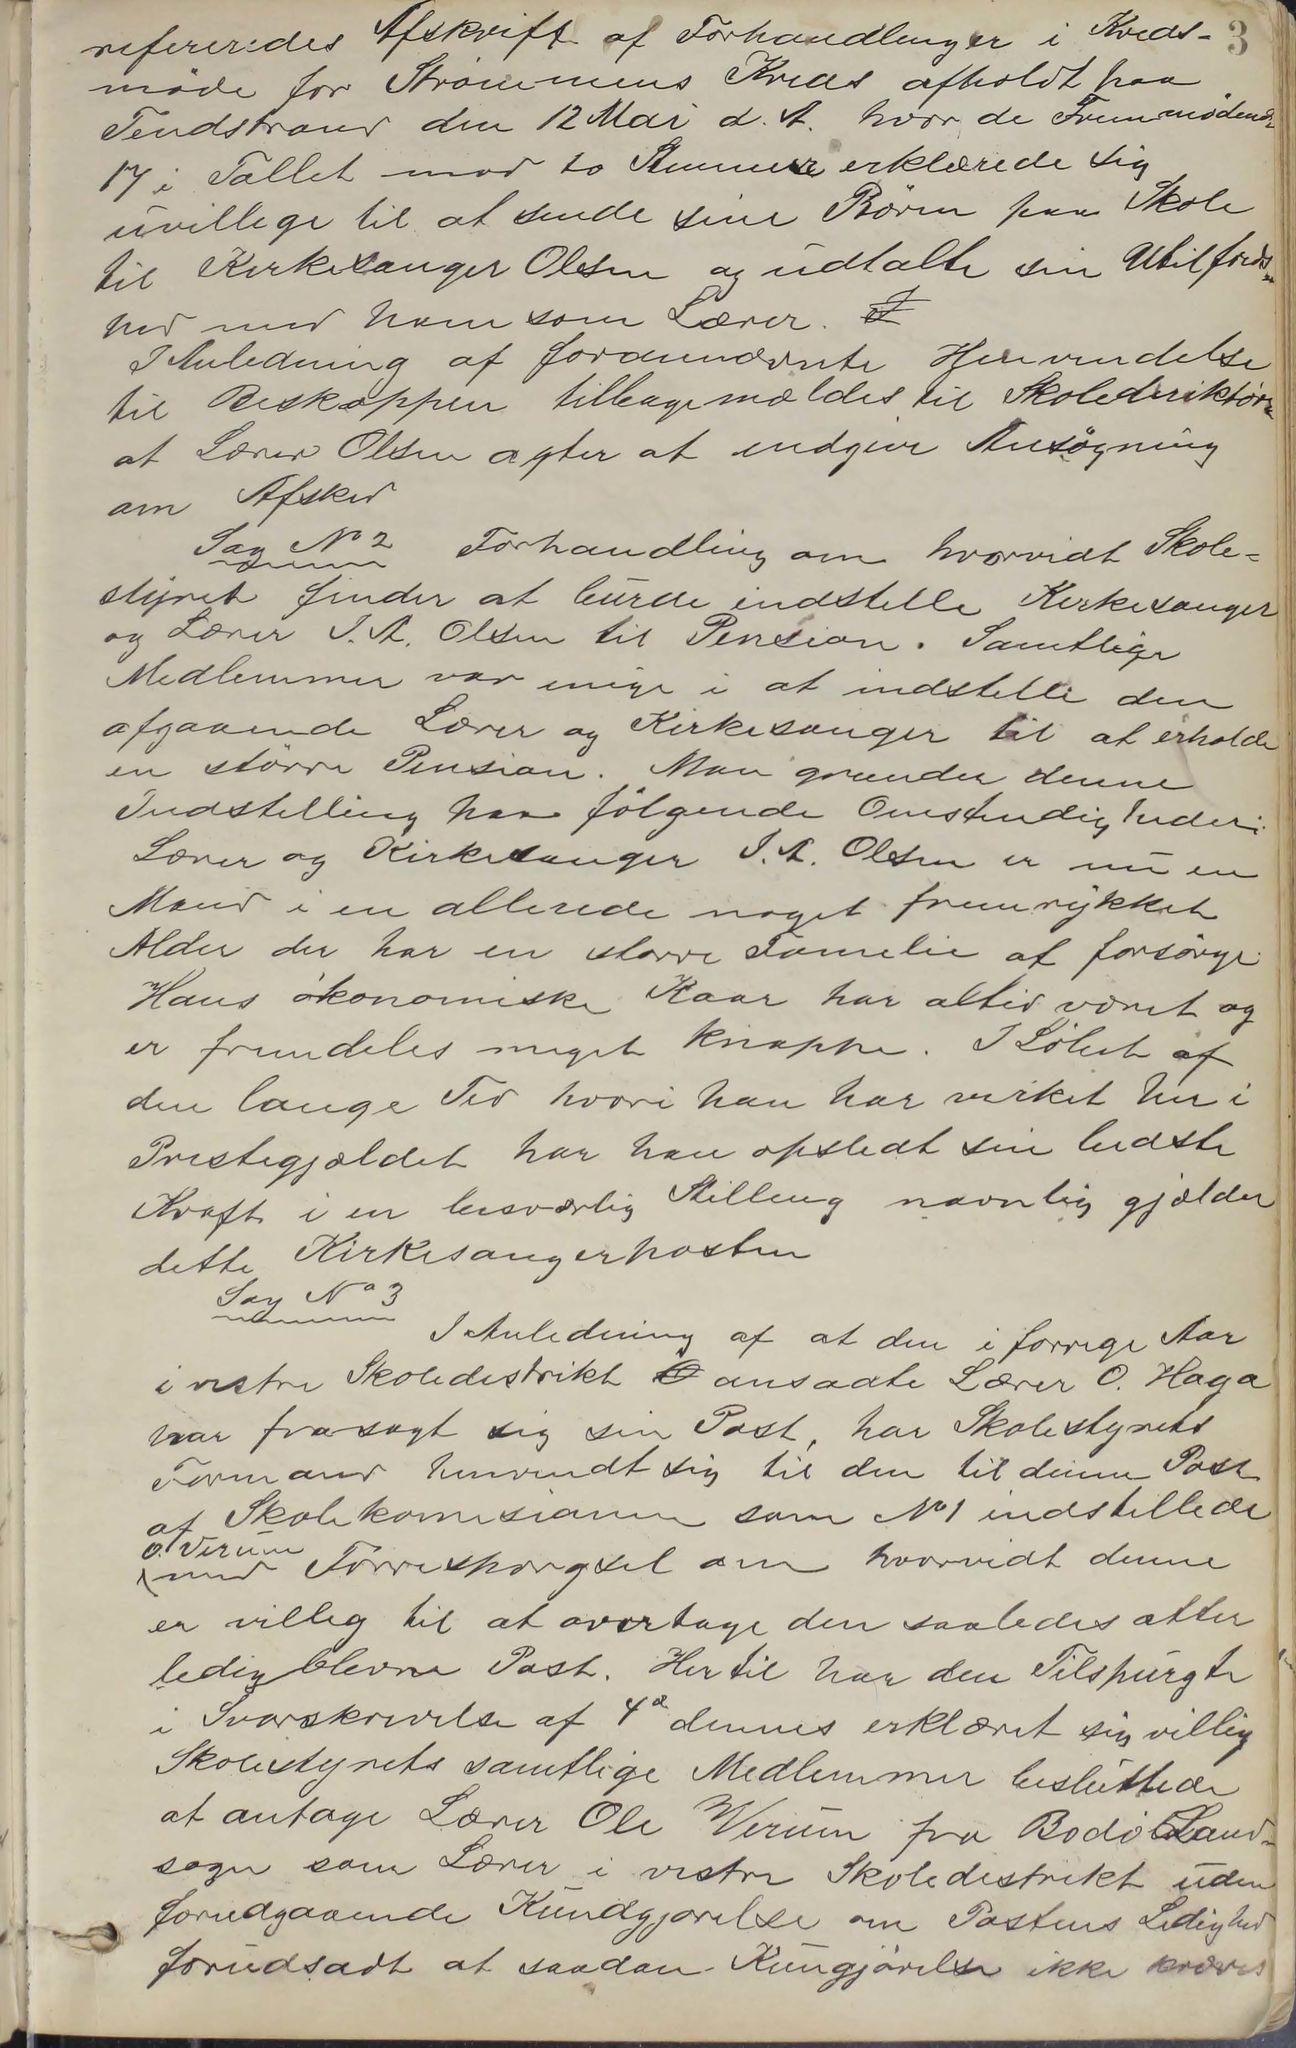 3
refereredes Afskrift af Forhandlinger i Kreds-
møde for Strømmens Kreds afholdt paa
Tendstrand den 12 Mai d. A. hvor de Fremmødende
17 i Tallet mod to Stemmer erklærede sig
uvillige til at sende sine Børn paa Skole
til Kirkesanger Olsen og udtalte sin Utilfreds-
hed med ham som Lærer.
I Anledning af forannævnte Henvendelse
til Beskoppen tilbagemældes til Skoledirektøren
at Lærer Olsen agter at indgive Ansøgning
om Afsked
Sag No 2 Forhandling om hvorvidt Skole-
styret finder at burde indstille Kirkesanger
og Lærer I. A. Olsen til Pension. Samtlige
Medlemmer var enige i at indstille den
afgaaende Lærer og Kirkesanger til at erholde
en større Pension. Man grunder denne
Indstilling paa følgende Omstendigheder:
Lærer og Kirkesanger I. A. Olsen er nu en
Mand i en allerede noget fremrykket
Alder der har en større Familie at forsørge
Hans økonomiske Kaar har altid været og
er fremdeles meget knappe. I Løbet af
den lange Tid hvori han har virket her i
Prestegjældet har han opslidt sin bedste
Kraft i en besværlig Stilling navnlig gjælder
dette Kirkesangerposten
Sag No 3
I Anledning af at den i forrige Aar
i vestre Skoledistrikt ansatte Lærer O. Haga
har frasagt sig sin Post, har Skolestyrets
Formand henvendt sig til den til denne Post
af Skolekomisionen som No 1 indstillede
O. Verum
med Forrespørgsel om hvorvidt denne
er villig til at overtage den saaledes atter
ledig blevne Post. Hertil har den Tilspurgte
i Svarskrivelse af 4de dennes erklæret sig villig
Skolestyrets samtlige Medlemmer besluttede
at antage Lærer Ole Werum fra Bodø Land-
sogn som Lærer i vestre Skoledistrikt uden
forudgaaende Kundgjørelse om Postens Ledighed
forudsadt at saadan Kungjørelse ikke kræves